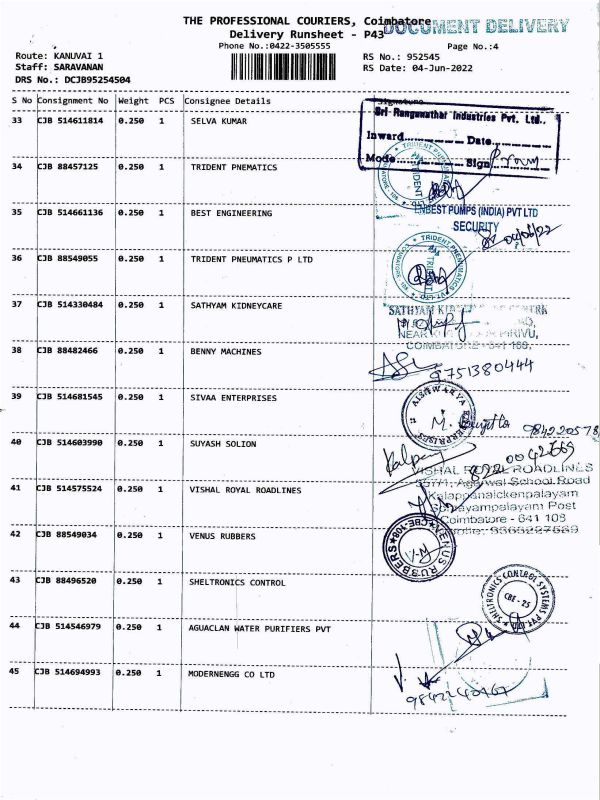 THE PROFESSIONAL COURIERS, Coimbatore
DOCUMENT DELIVERY
Delivery Runsheet - P43
Phone No.:0422-3505555
Page No.:4
Route: KANUVAI 1
RS No.: 952545
Staff: SARAVANAN
RS Date: 04-Jun-2022
DRS No.: DCJB95254504
S No Consignment No Weight PCS Consignee Details Signature
33 CJB 514611814 0.250 1 SELVA KUMAR
Sri Ranganathar Industries Pvt. Ltd.,
Inward.............. Date..............
Mode.............. Sign
34 CJB 88457125 0.250 1 TRIDENT PNEMATICS
35 CJB 514661136 0.250 1 BEST ENGINEERING
ENBEST PUMPS (INDIA) PVT LTD
SECURITY
36 CJB 88549055 0.250 1 TRIDENT PNEUMATICS P LTD
TRIDENT PNEUMATICS PVT. LTD.
37 CJB 514330484 0.250 1 SATHYAM KIDNEYCARE
SATHYAM
COIMBATORE - 641 108,
38 CJB 88482466 0.250 1 BENNY MACHINES
9751380444
39 CJB 514681545 0.250 1 SIVAA ENTERPRISES
AISHWARYA ENTERPRISES
40 CJB 514603990 0.250 1 SUYASH SOLION
41 CJB 514575524 0.250 1 VISHAL ROYAL ROADLINES
VISHAL ROYAL ROADLINES
557/1, Agarwal School Road
Kalappanaickenpalayam
Somayampalayam Post
Coimbatore - 641 108
42 CJB 88549034 0.250 1 VENUS RUBBERS
VENUS RUBBERS CBE-108
43 CJB 88496520 0.250 1 SHELTRONICS CONTROL
SHELTRONICS CONTROL SYSTEMS PVT LTD
CBE - 25
44 CJB 514546979 0.250 1 AGUACLAN WATER PURIFIERS PVT
45 CJB 514694993 0.250 1 MODERNENGG CO LTD